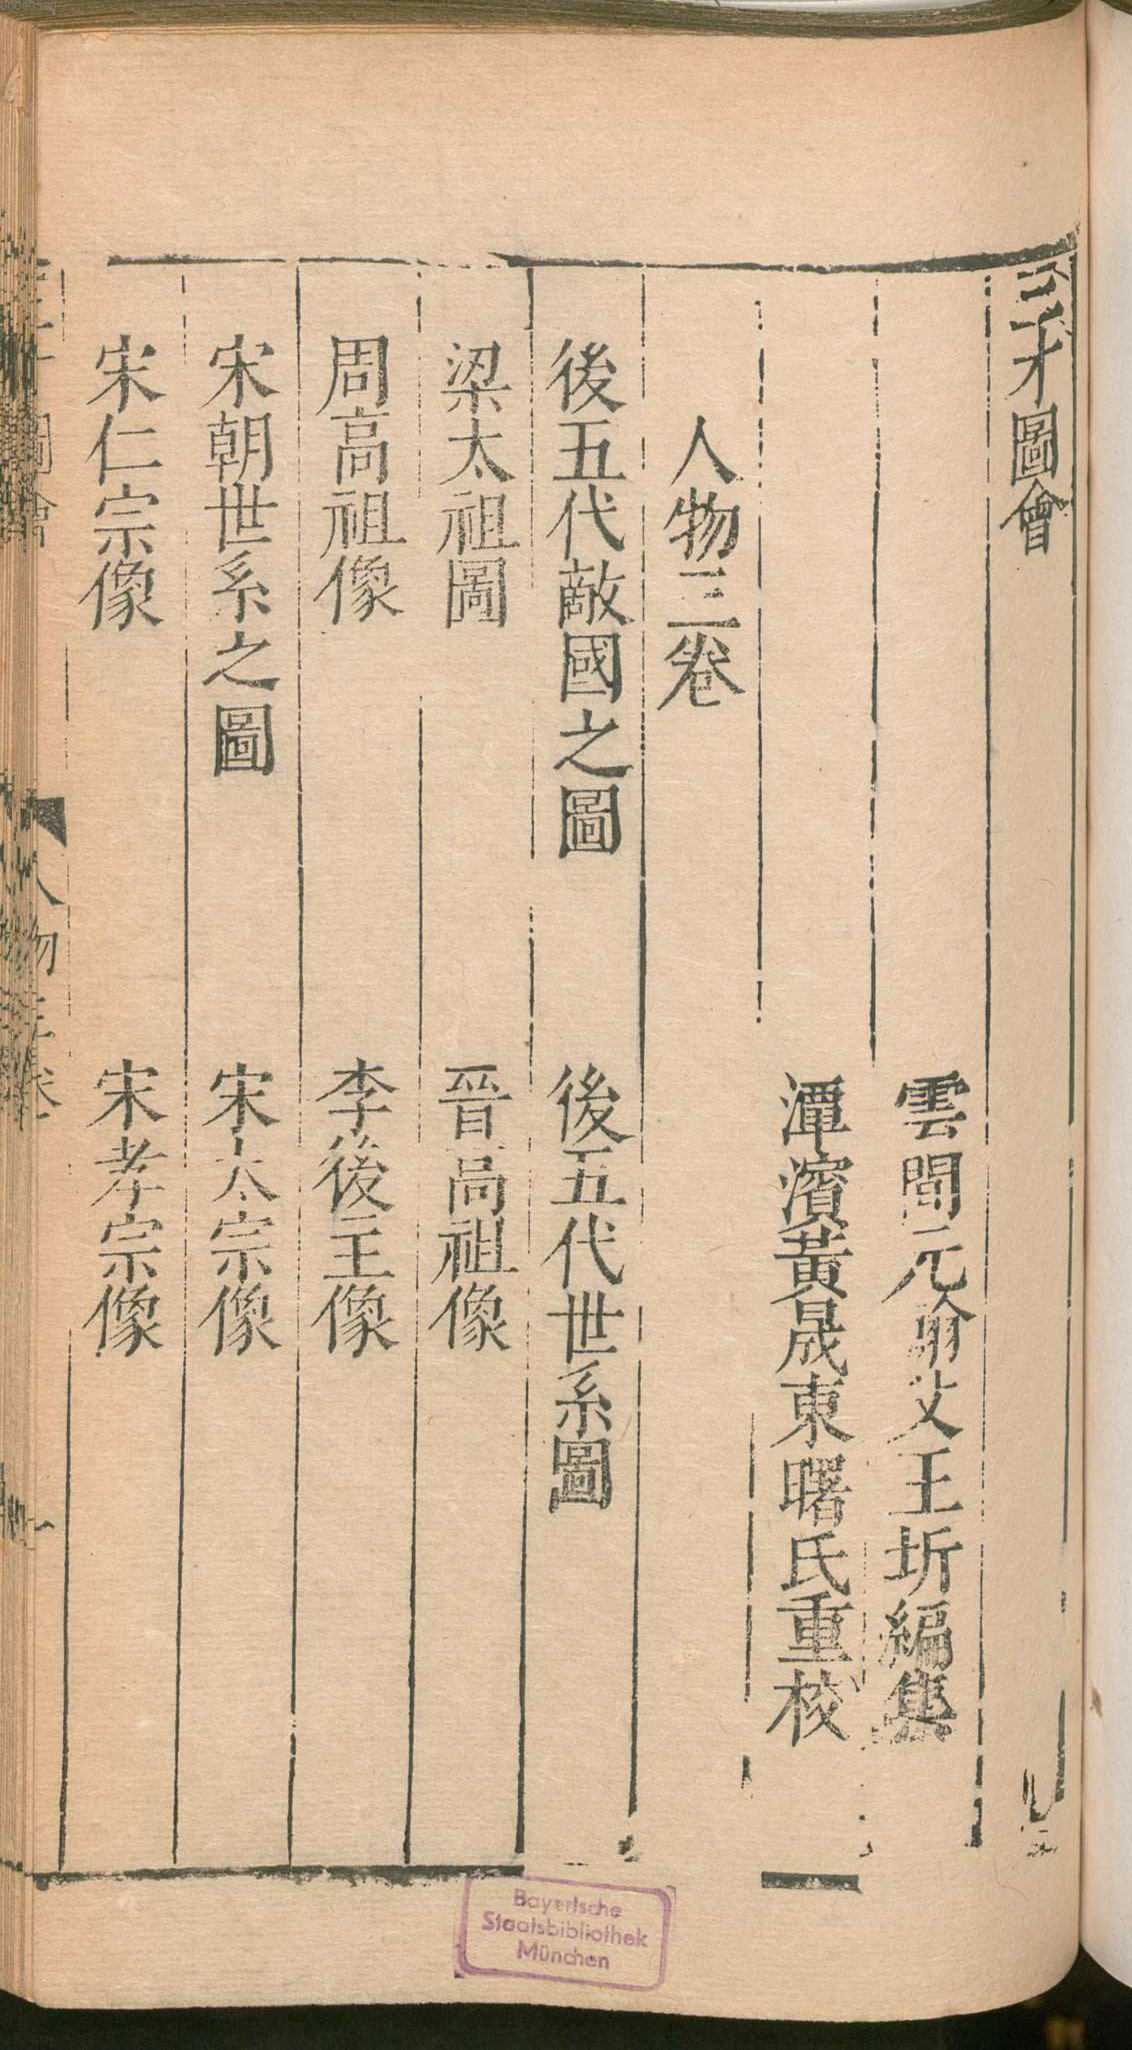 三才圖會
雲間元翰父王圻編集
潭濱黃晟東曙氏重校
人物三卷
後五代敵國之圖
後五代世系圖
梁太祖圖
晉高祖像
周高祖像
李後王像
宋朝世系之圖
宋太宗像
宋仁宗像
宋孝宗像
圖會
人物三卷
一
Bayerische
Staatsbibliothek
München